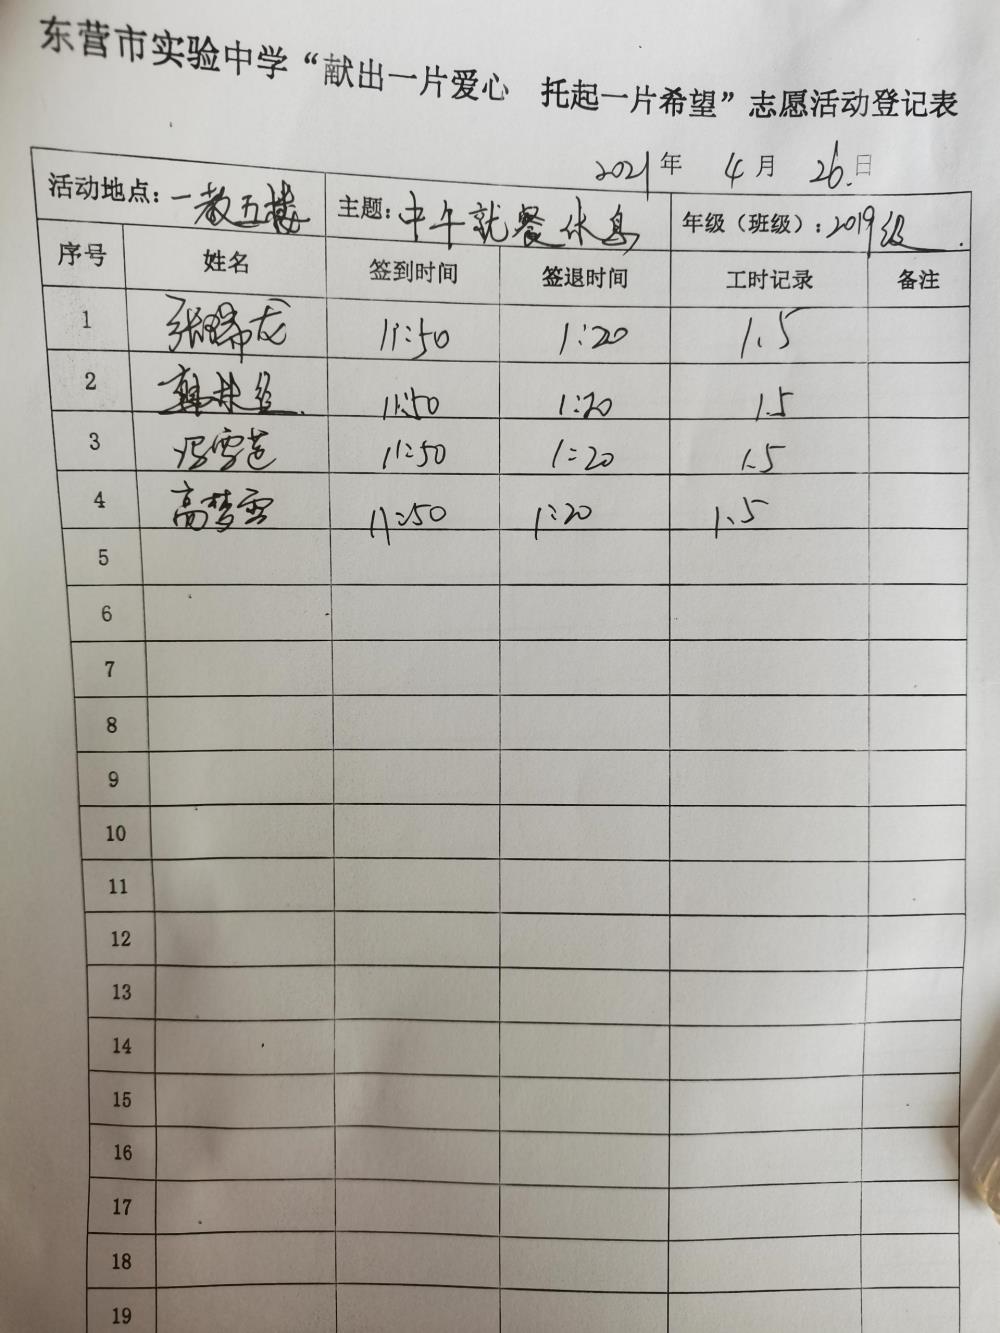 东营市实验中学“献出一片爱心 托起一片希望”志愿活动登记表
2021年 4月 26.日
活动地点：一教五楼 主题：中午就餐休息 年级（班级）：2019级
序号 姓名 签到时间 签退时间 工时记录 备注
1 张瑞龙 11:50 1:20 1.5
2 11:50 1:20 1.5
3 11:50 1:20 1.5
4 高梦雪 11:50 1:20 1.5
5
6
7
8
9
10
11
12
13
14
15
16
17
18
19